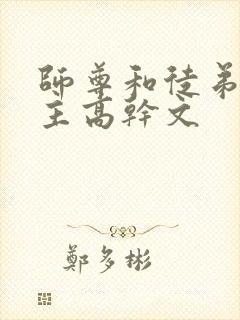 師尊和徒弟
主高幹文
鄭多彬